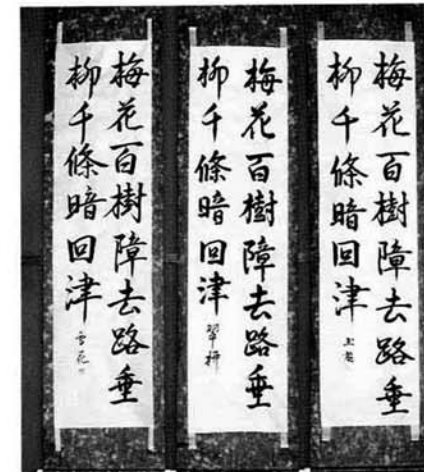 梅花百樹障去路垂
柳千條暗回津
梅花百樹障去路垂
柳千條暗回津
翠柳
梅花百樹障去路垂
柳千條暗回津